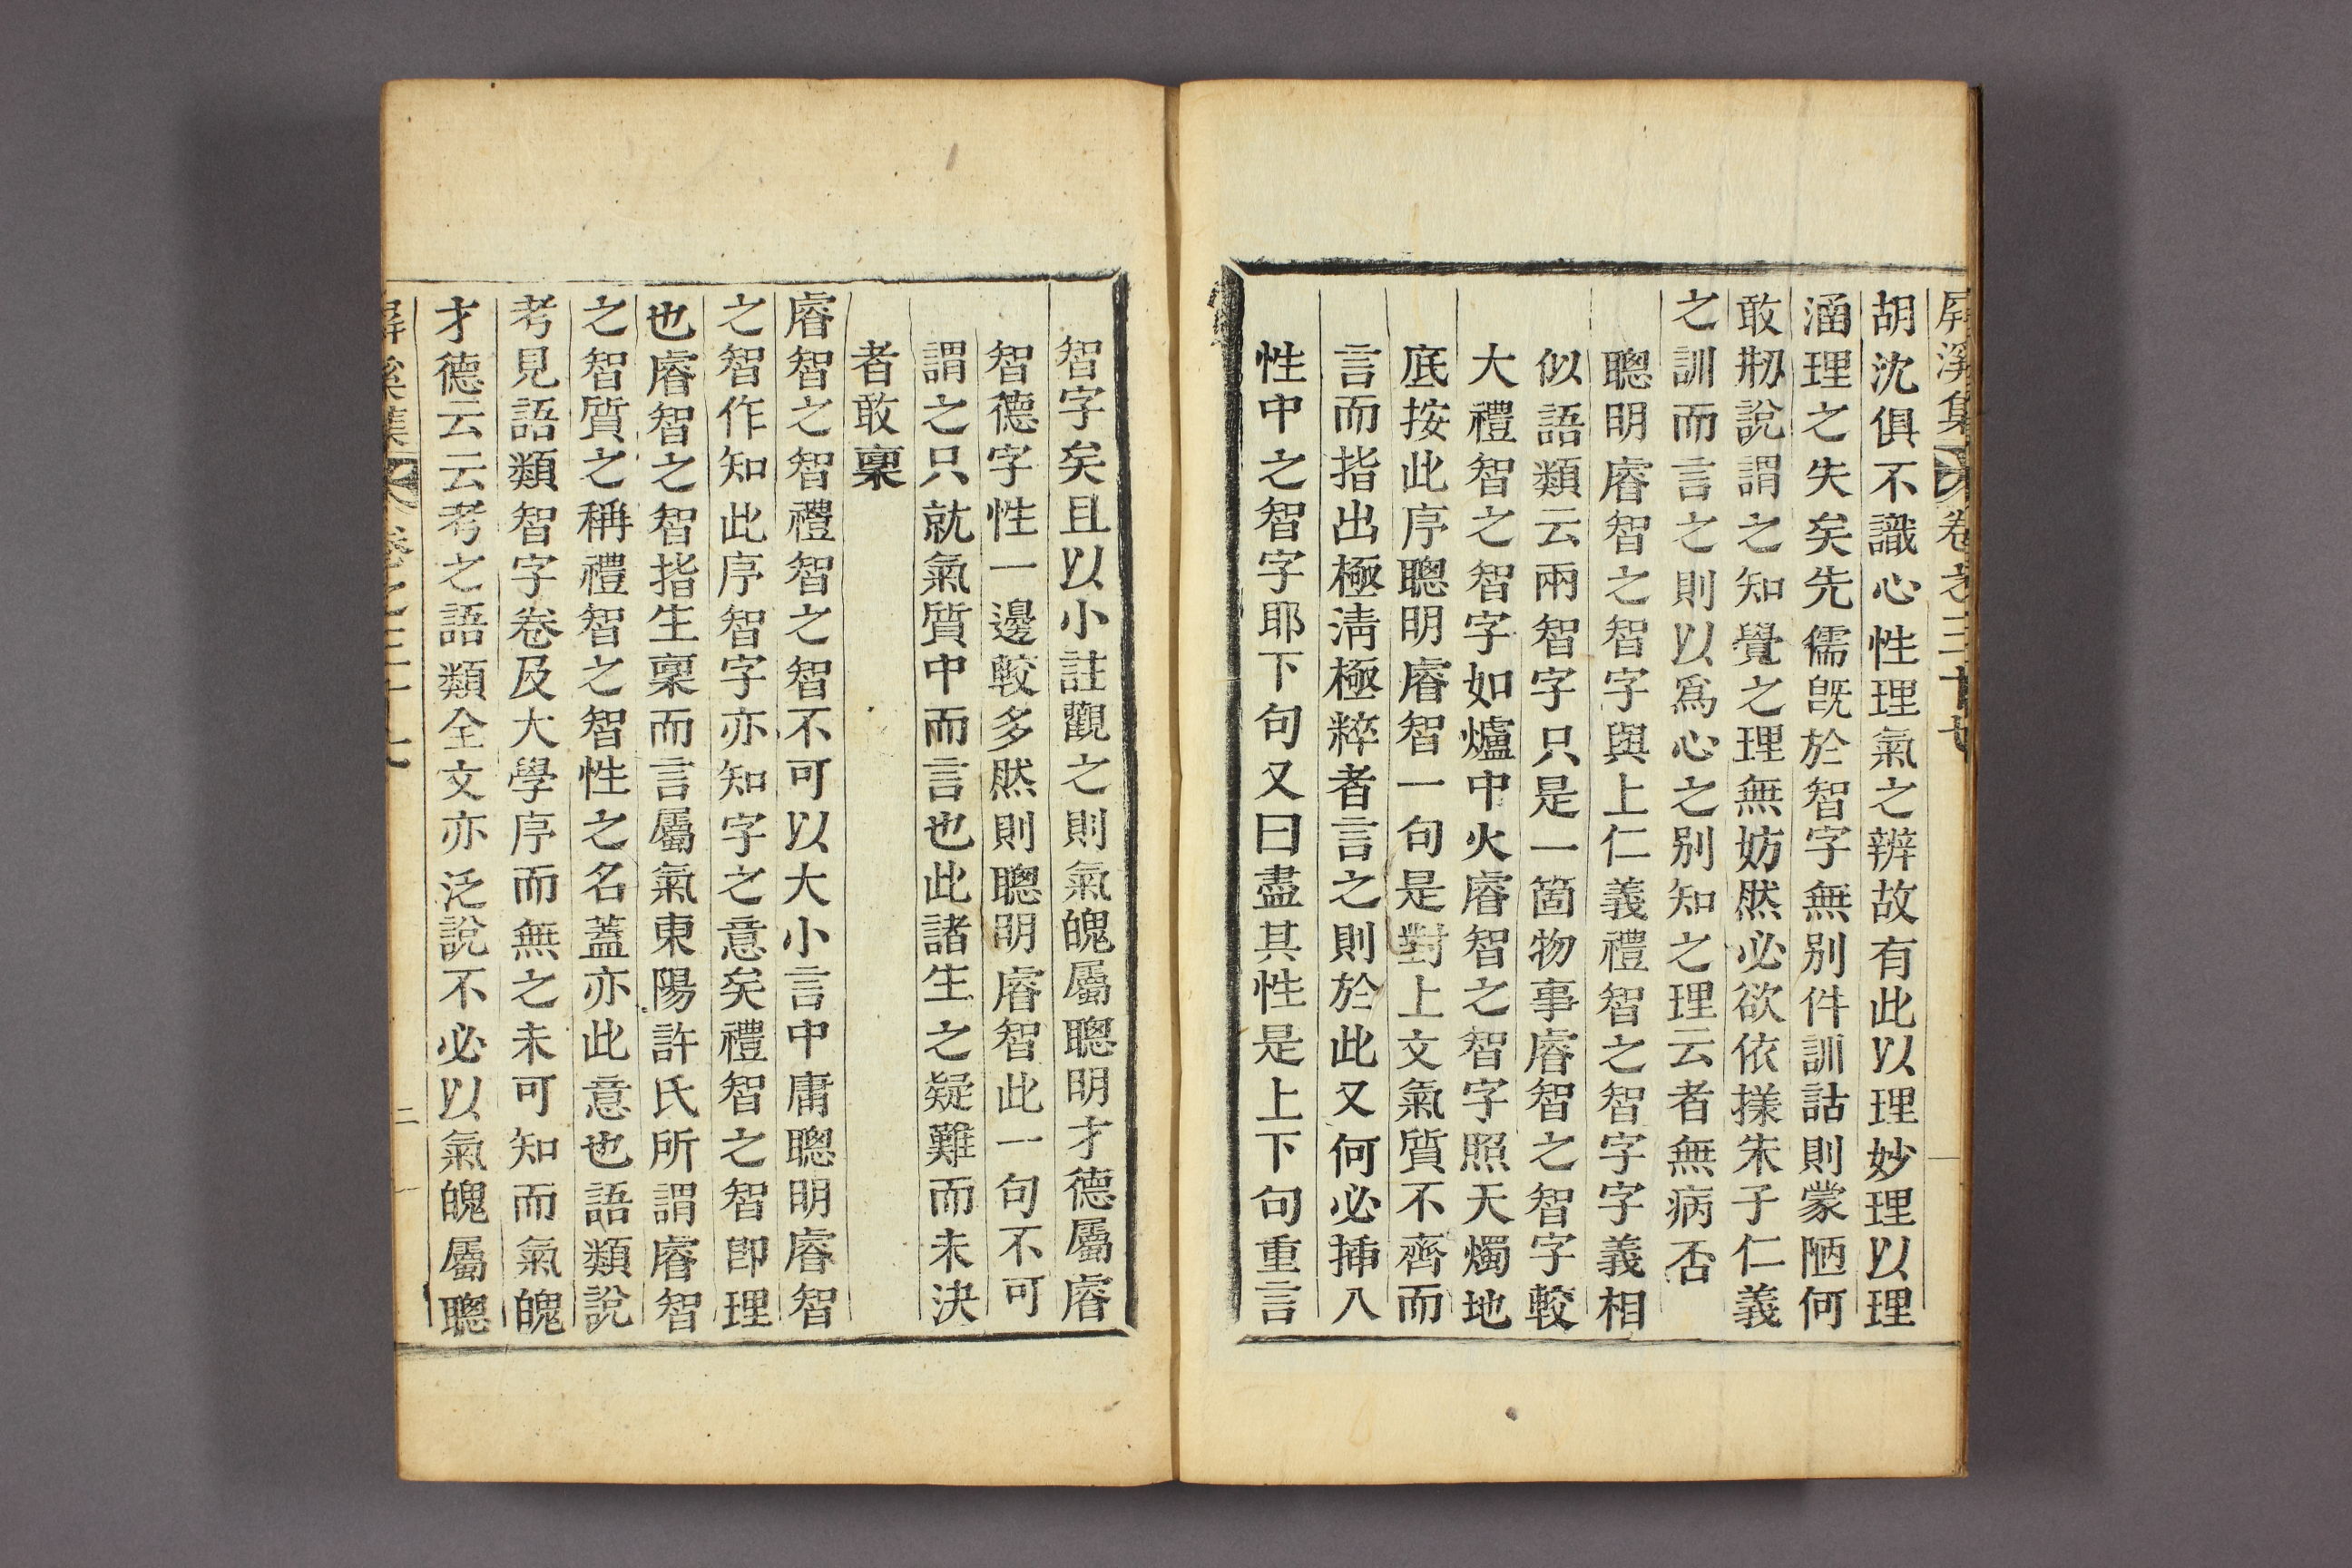 屛溪集 卷之三十七
胡沈俱不識心性理氣之辨故有此以理妙理以理
涵理之失矣先儒旣於智字無別件訓詁則蒙陋何
敢刱說謂之知覺之理無妨然必欲依㨾朱子仁義
之訓而言之則以爲心之別知之理云者無病否
聰明睿智之智字與上仁義禮智之智字字義相
似語類云兩智字只是一箇物事睿智之智字較
大禮智之智字如爐中火睿智之智字照天燭地
底按此序聰明睿智一句是對上文氣質不齊而
言而指出極淸極粹者言之則於此又何必揷八
性中之智字耶下句又曰盡其性是上下句重言
智字矣且以小註觀之則氣魄屬聰明才德屬睿
智德字性一邊較多然則聰明睿智此一句不可
謂之只就氣質中而言也此諸生之疑難而未決
者敢稟
睿智之智禮智之智不可以大小言中庸聰明睿智
之智作知此序智字亦知字之意矣禮智之智卽理
也睿智之智指生稟而言屬氣東陽許氏所謂睿智
之智質之稱禮智之智性之名蓋亦此意也語類說
考見語類智字卷及大學序而無之未可知而氣魄
才德云云考之語類全文亦泛說不必以氣魄屬聰
屛溪集 卷之三十七 二